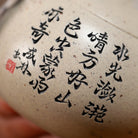 水光瀲灩
晴方好山
色空蒙雨
亦奇